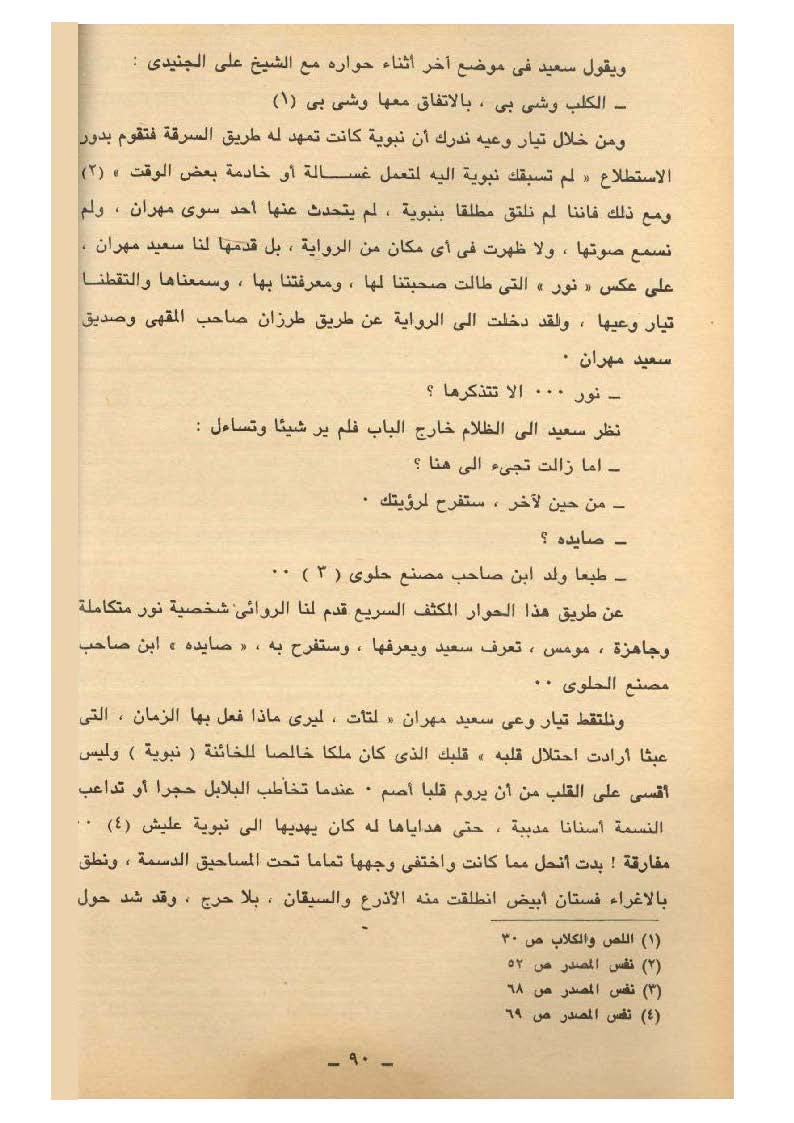 ويقول سعيد فى موضع آخر أثناء حواره مع الشيخ على الجنيدى :
ـ الكلب وشى بى ، بالاتفاق معها وشى بى (١)
ومن خلال تيار وعيه ندرك أن نبوية كانت تمهد له طريق السرقة فتقوم بدور
الاستطلاع « لم تسبقك نبوية اليه لتعمل غســـالة أو خادمة بعض الوقت » (٢)
ومع ذلك فاننا لم نلتق مطلقا بنبوية ، لم يتحدث عنها أحد سوى مهران ، ولم
نسمع صوتها ، ولا ظهرت فى أى مكان من الرواية ، بل قدمها لنا سعيد مهران ،
على عكس « نور » التى طالت صحبتنا لها ، ومعرفتنا بها ، وسمعناها والتقطنـا
تيار وعيها ، ولقد دخلت الى الرواية عن طريق طرزان صاحب المقهى وصديق
سعيد مهران ٠
ـ نور ٠٠٠ الا تتذكرها ؟
نظر سعيد الى الظلام خارج الباب فلم ير شيئا وتساءل :
ـ اما زالت تجىء الى هنا ؟
ـ من حين لآخر ، ستفرح لرؤيتك ٠
ـ صايده ؟
ـ طبعا ولد ابن صاحب مصنع حلوى ( ٣ ) ٠٠
عن طريق هذا الحوار المكثف السريع قدم لنا الروائى شخصية نور متكاملة
وجاهزة ، مومس ، تعرف سعيد ويعرفها ، وستفرح به ، « صايده » ابن صاحب
مصنع الحلوى ٠٠
ونلتقط تيار وعى سعيد مهران « لتأت ، ليرى ماذا فعل بها الزمان ، التى
عبثا أرادت احتلال قلبه » قلبك الذى كان ملكا خالصا للخائنة ( نبوية ) وليس
أقسى على القلب من أن يروم قلبا أصم ٠ عندما تخاطب البلابل حجرا أو تداعب
النسمة أسنانا مدببة ، حتى هداياها له كان يهديها الى نبوية عليش (٤) ٠٠
مفارقة ! بدت أنحل مما كانت واختفى وجهها تماما تحت المساحيق الدسمة ، ونطق
بالاغراء فستان أبيض انطلقت منه الأذرع والسيقان ، بلا حرج ، وقد شد حول
(١) اللص والكلاب ص ٣٠
(٢) نفس المصدر ص ٥٢
(٣) نفس المصدر ص ٦٨
(٤) نفس المصدر ص ٦٩
ـ ٩٠ ـ